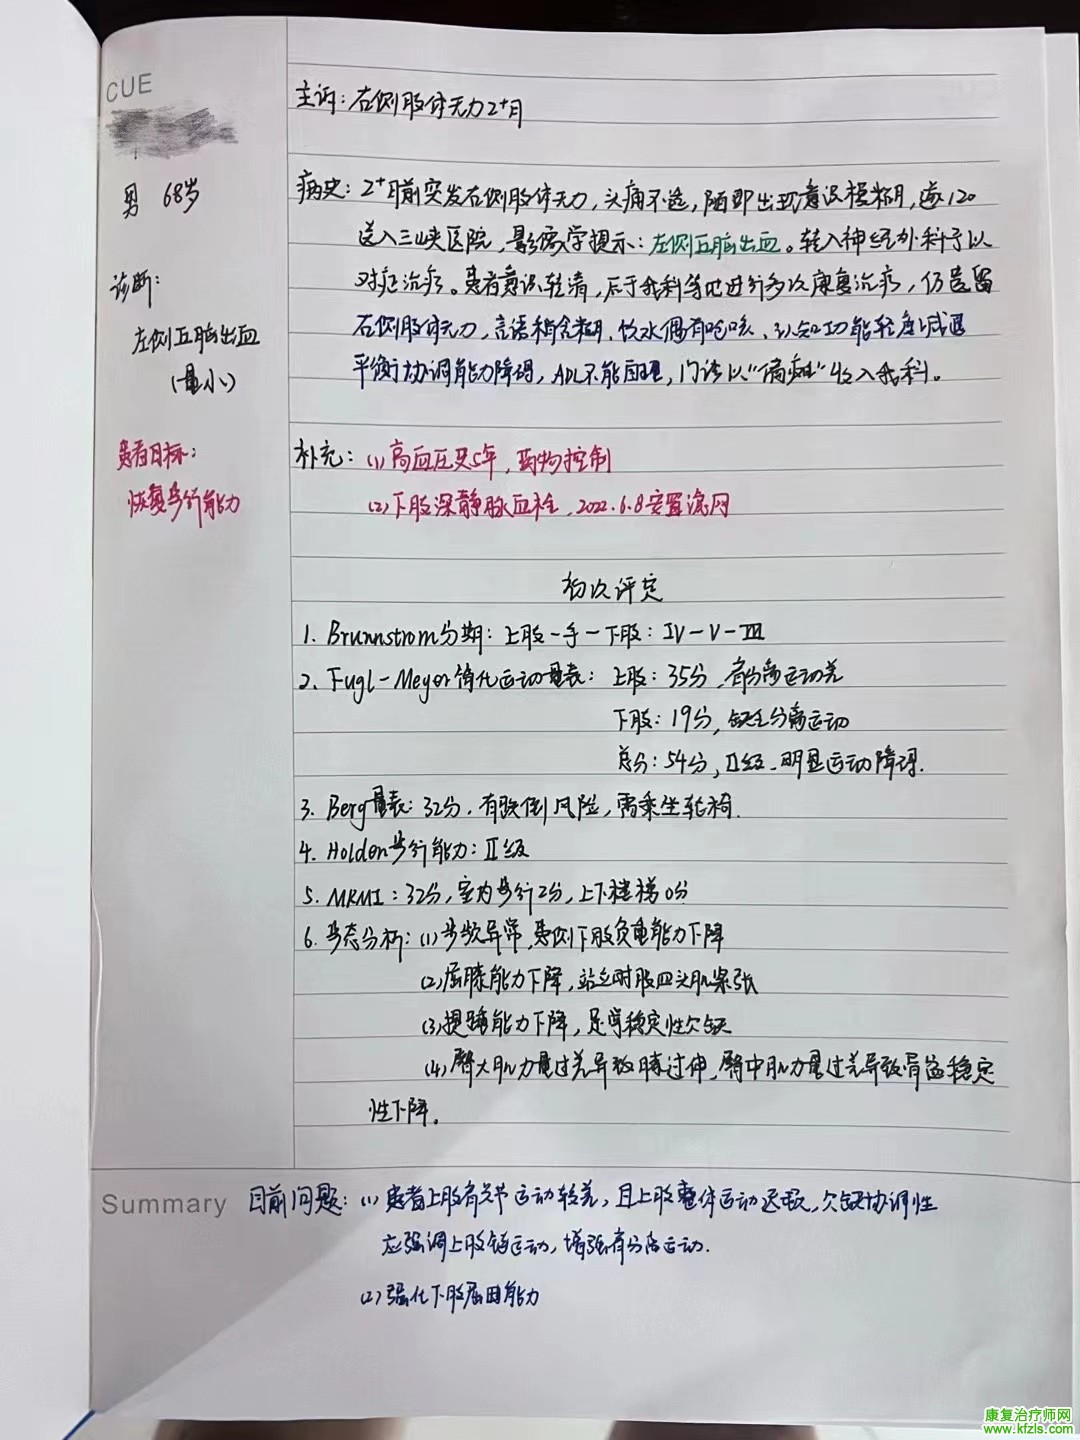 CUE
男 68岁
诊断:
左侧丘脑出血
(量小)
患者目标:
恢复步行能力
主诉: 右侧肢体无力2+月
病史: 2+月前突发右侧肢体无力,头痛不适,随即出现意识模糊,遂120
送入三峡医院,影像学提示:左侧丘脑出血。转入神经外科予以
对症治疗。患者意识转清,后于我科等地进行多次康复治疗,仍遗留
右侧肢体无力,言语稍含糊、饮水偶有呛咳、认知功能轻度减退
平衡协调能力障碍,ADL不能自理,门诊以"偏瘫"收入我科。
补充: (1)高血压史5年,药物控制
(2)下肢深静脉血栓,2022.6.8安置滤网
初次评定
1. Brunnstrom分期: 上肢-手-下肢: IV-V-III
2. Fugl-Meyer简化运动量表: 上肢: 35分,分离运动差
下肢: 19分,缺乏分离运动
总分: 54分,II级、明显运动障碍.
3. Berg量表: 32分,有跌倒风险,需乘坐轮椅.
4. Holden步行能力: II级
5. MRMI: 32分,室内步行2分,上下楼梯0分
6. 步态分析: (1)步频异常,患侧下肢负重能力下降
(2)屈膝能力下降,站立时股四头肌紧张
(3)提踵能力下降,足弓稳定性欠缺
(4)臀大肌力量过差导致膝过伸、臀中肌力量过差导致骨盆稳定
性下降。
Summary
目前问题: (1)患者上肢肩关节运动较差,且上肢整体运动迟缓,欠缺协调性
应强调上肢运动,增强分离运动.
(2)强化下肢屈曲能力
康复治疗师网
www.kfzls.com